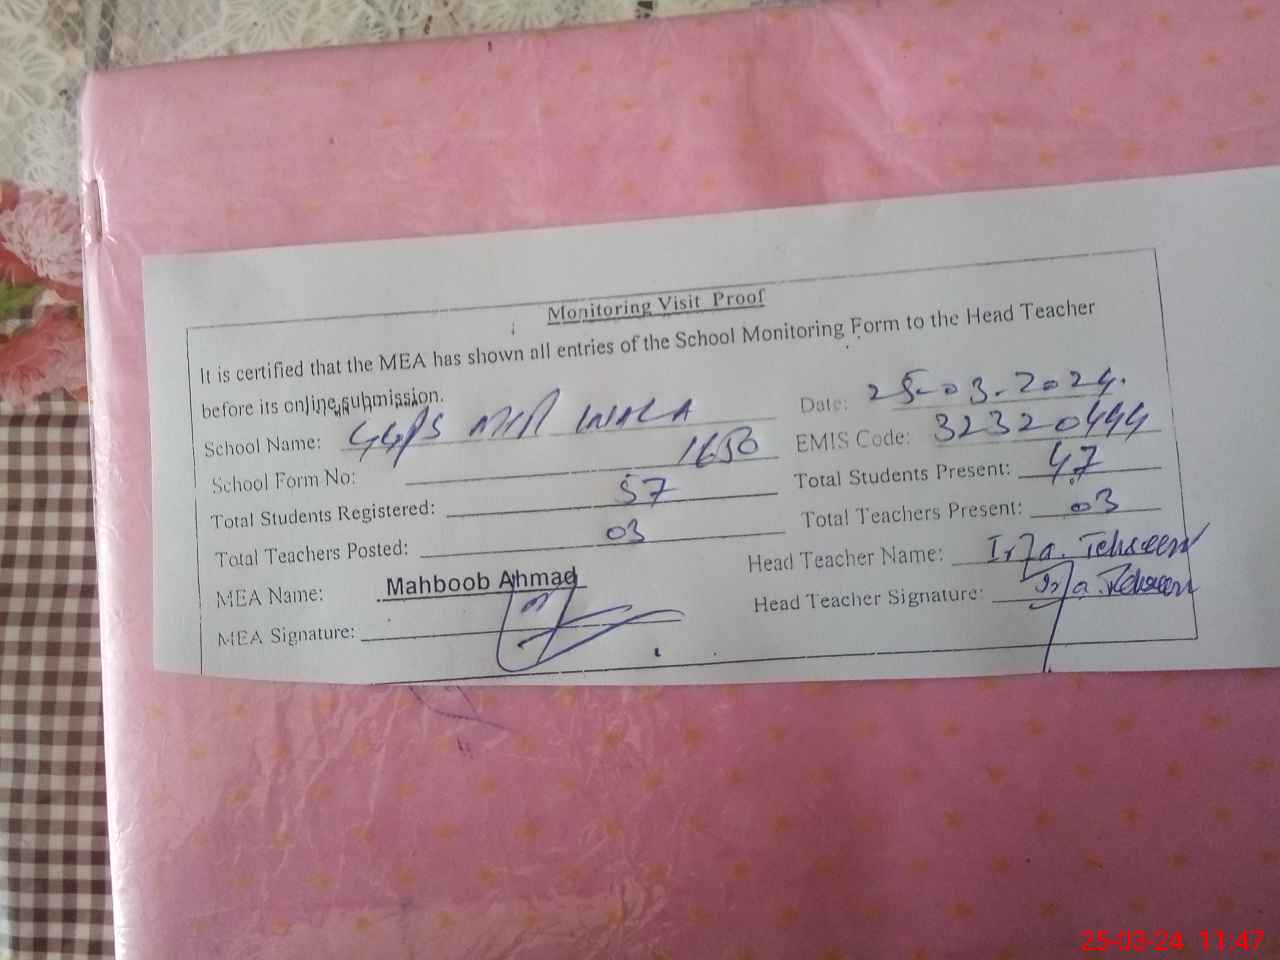 Monitoring Visit Proof
It is certified that the MEA has shown all entries of the School Monitoring Form to the Head Teacher
before its online submission.
School Name: GGPS MIR WALA Date: 25-03-2024.
School Form No: 1650 EMIS Code: 32320444
Total Students Registered: 57 Total Students Present: 47
Total Teachers Posted: 03 Total Teachers Present: 03
MEA Name: Mahboob Ahmad Head Teacher Name: Tehseen
MEA Signature: Head Teacher Signature:
25-03-24 11:47